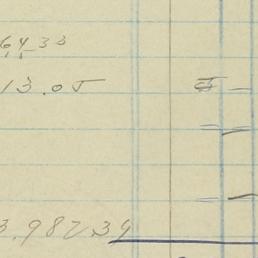 64 33
13.05
3.982.34